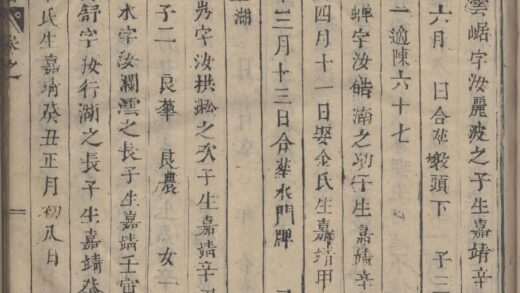 雲崌字汝麗波之子生嘉靖辛
六月 日合葬墩頭下 子三
一適陳六十七
蟬字汝皓湳之幼子生嘉靖辛
四月十一日娶余氏生嘉靖甲
三月十三日合葬水門牌
湖
字汝拱淞之次子生嘉靖辛
子二 良華 良農 女二
水字汝瀾澐之長子生嘉靖壬寅
舒字汝行湖之長子生嘉靖癸
氏生嘉靖癸丑正月初八日
卷之